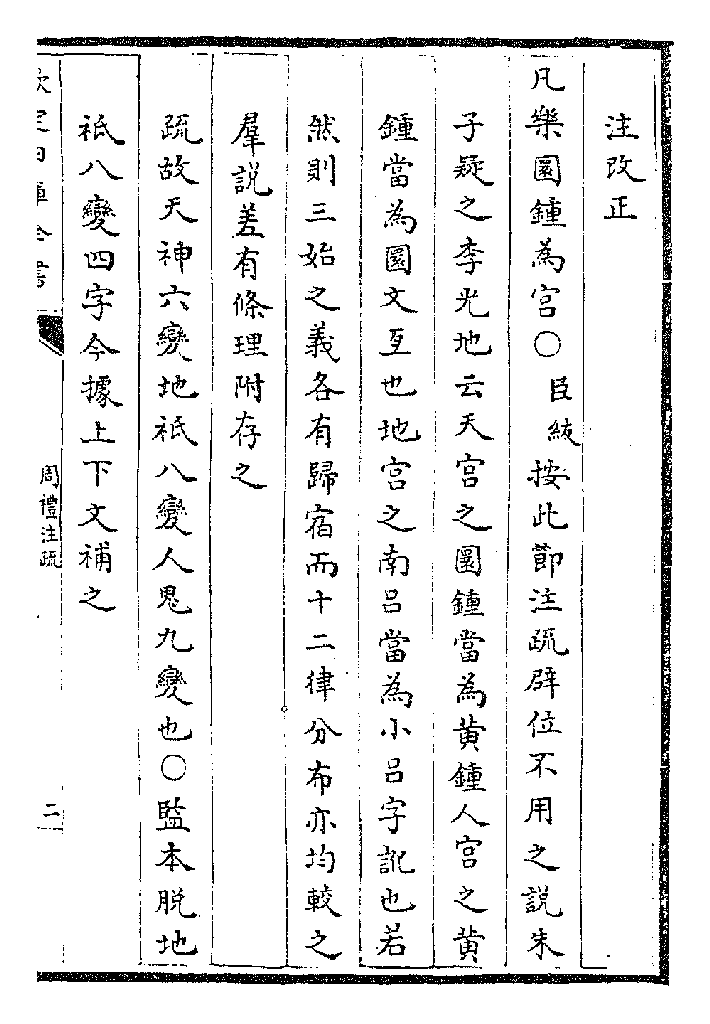 注改正
凡樂圜鍾為宮○臣紱按此節注疏辟位不用之說朱
子疑之李光地云天宮之圜鍾當為黃鍾人宮之黃
鍾當為圜文互也地宮之南呂當為小呂字訛也若
然則三始之義各有歸宿而十二律分布亦均較之
羣說差有條理附存之
疏故天神六變地祇八變人鬼九變也○監本脫地
祇八變四字今據上下文補之
欽定四庫全書
周禮注疏
二